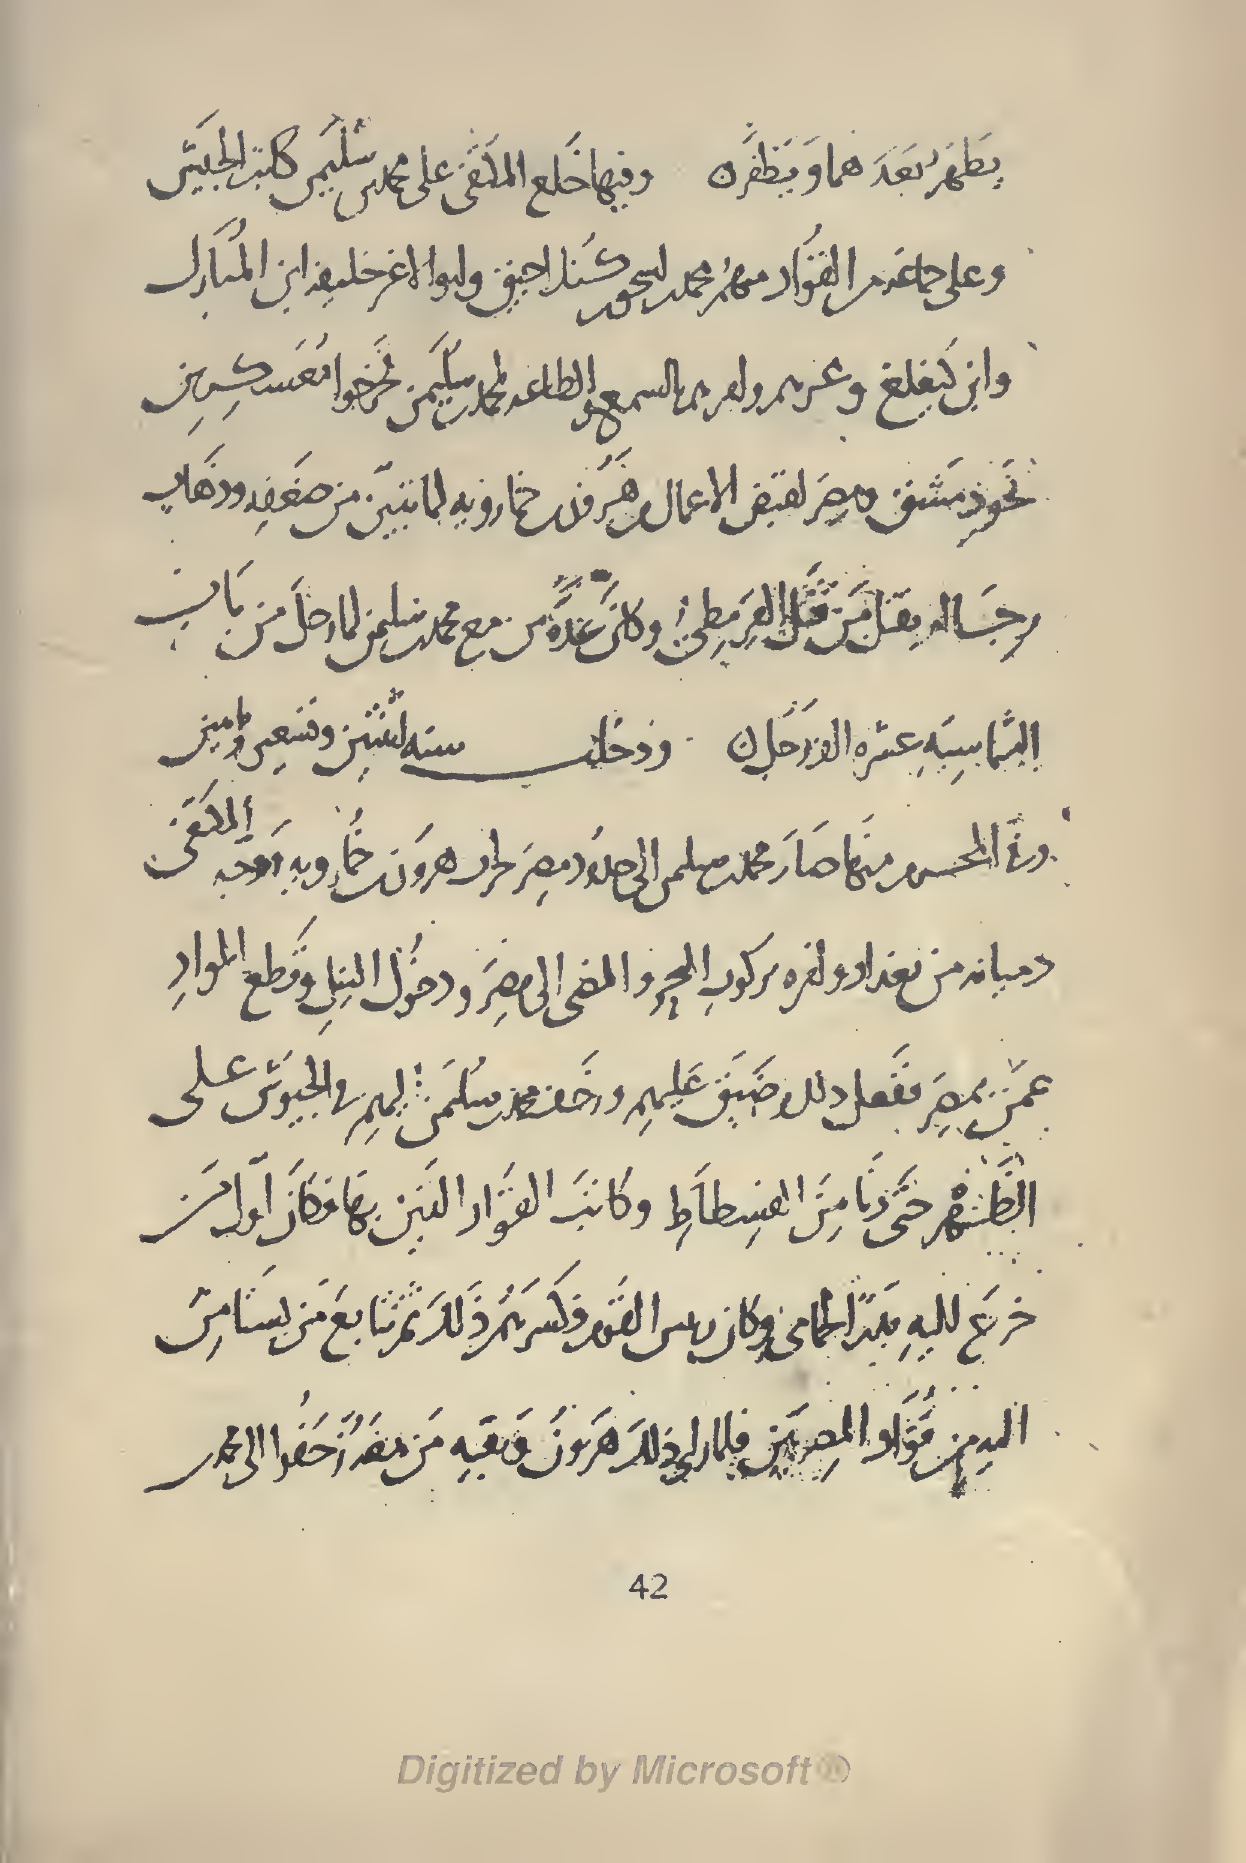 يظهر بعدهما ويظفرن وفيها خلع المكتفى على محمد بن سليمن كاتب الجيش
وعلى جماعة من القواد منهم محمد بن اسحق بن كنداجيق وابو الاغر خليفة ابن المبارك
وابن كيغلغ وغيرهم وامرهم بالسمع والطاعة لمحمد بن سليمن فخرجوا معسكرين
نحو دمشق ومصر لقبض الاعمال من هرون بن خمارويه لما تبين من ضعفه وذهاب
رجاله بقتل من قتل القرمطى وكان عدة من مع محمد بن سليمن لما رحل من باب
الشماسية عشرة الف رجل ن ودخلت سنه اثنتين وتسعين ومايتين
فى المحرم منها صار محمد بن سليمن الى حدود مصر لحرب هرون بن خمارويه ووجه المكتفى
دميانه من بغداد وامره بركوب البحر والمضى الى مصر ودخول النيل وقطع المواد
عمن بمصر ففعل ذلك وضيق عليهم وزحف محمد بن سليمن اليهم فى الجيوش على
الظهر حتى دنا من الفسطاط وكاتب القواد الذين بها فكان اول من
خرج اليه بدر الحمامى وكان رييس القوم فكسرهم ذلك ثم تتابع من يستامن
اليه من قواد المصريين فلما راى ذلك هرون وبقية من معه زحفوا الى محمد بن
42
Digitized by Microsoft ®